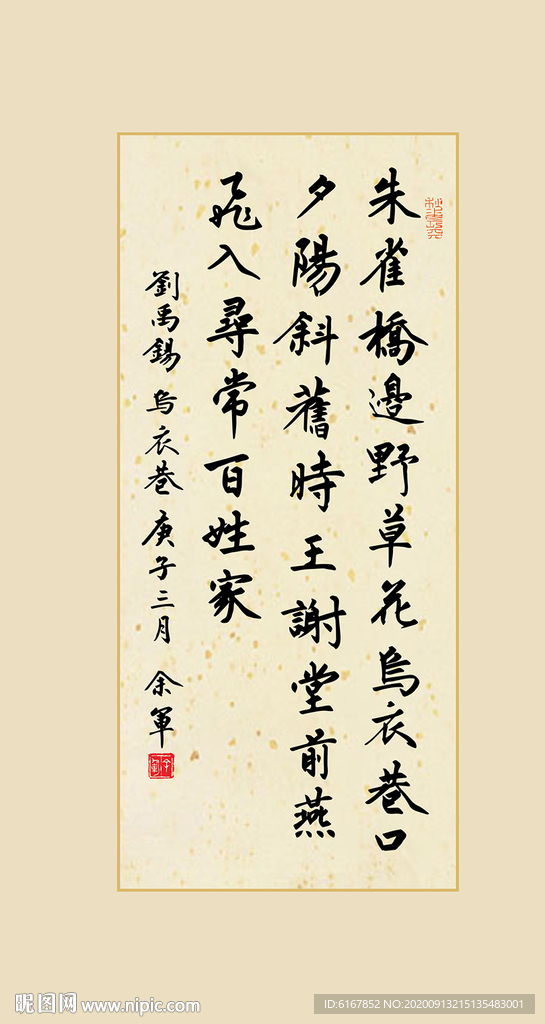 朱雀橋邊野草花烏衣巷口
夕陽斜舊時王謝堂前燕
飛入尋常百姓家
劉禹錫 烏衣巷 庚子三月 余軍
昵图网 www.nipic.com
ID:6167852 NO:20200913215135483001